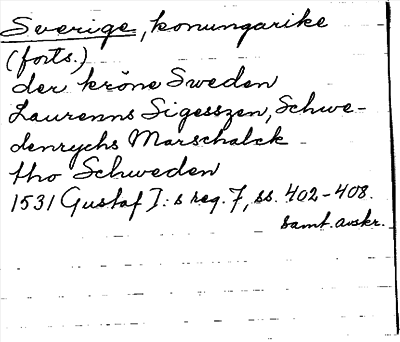 Sverige, konungarike
(forts.)
der kröne Sweden
Laurenns Sigesszen, Schwe-
denrychs Marschalck
tho Schweden
1531 Gustaf I:s reg. 7, ss. 402-408.
samt. avskr.